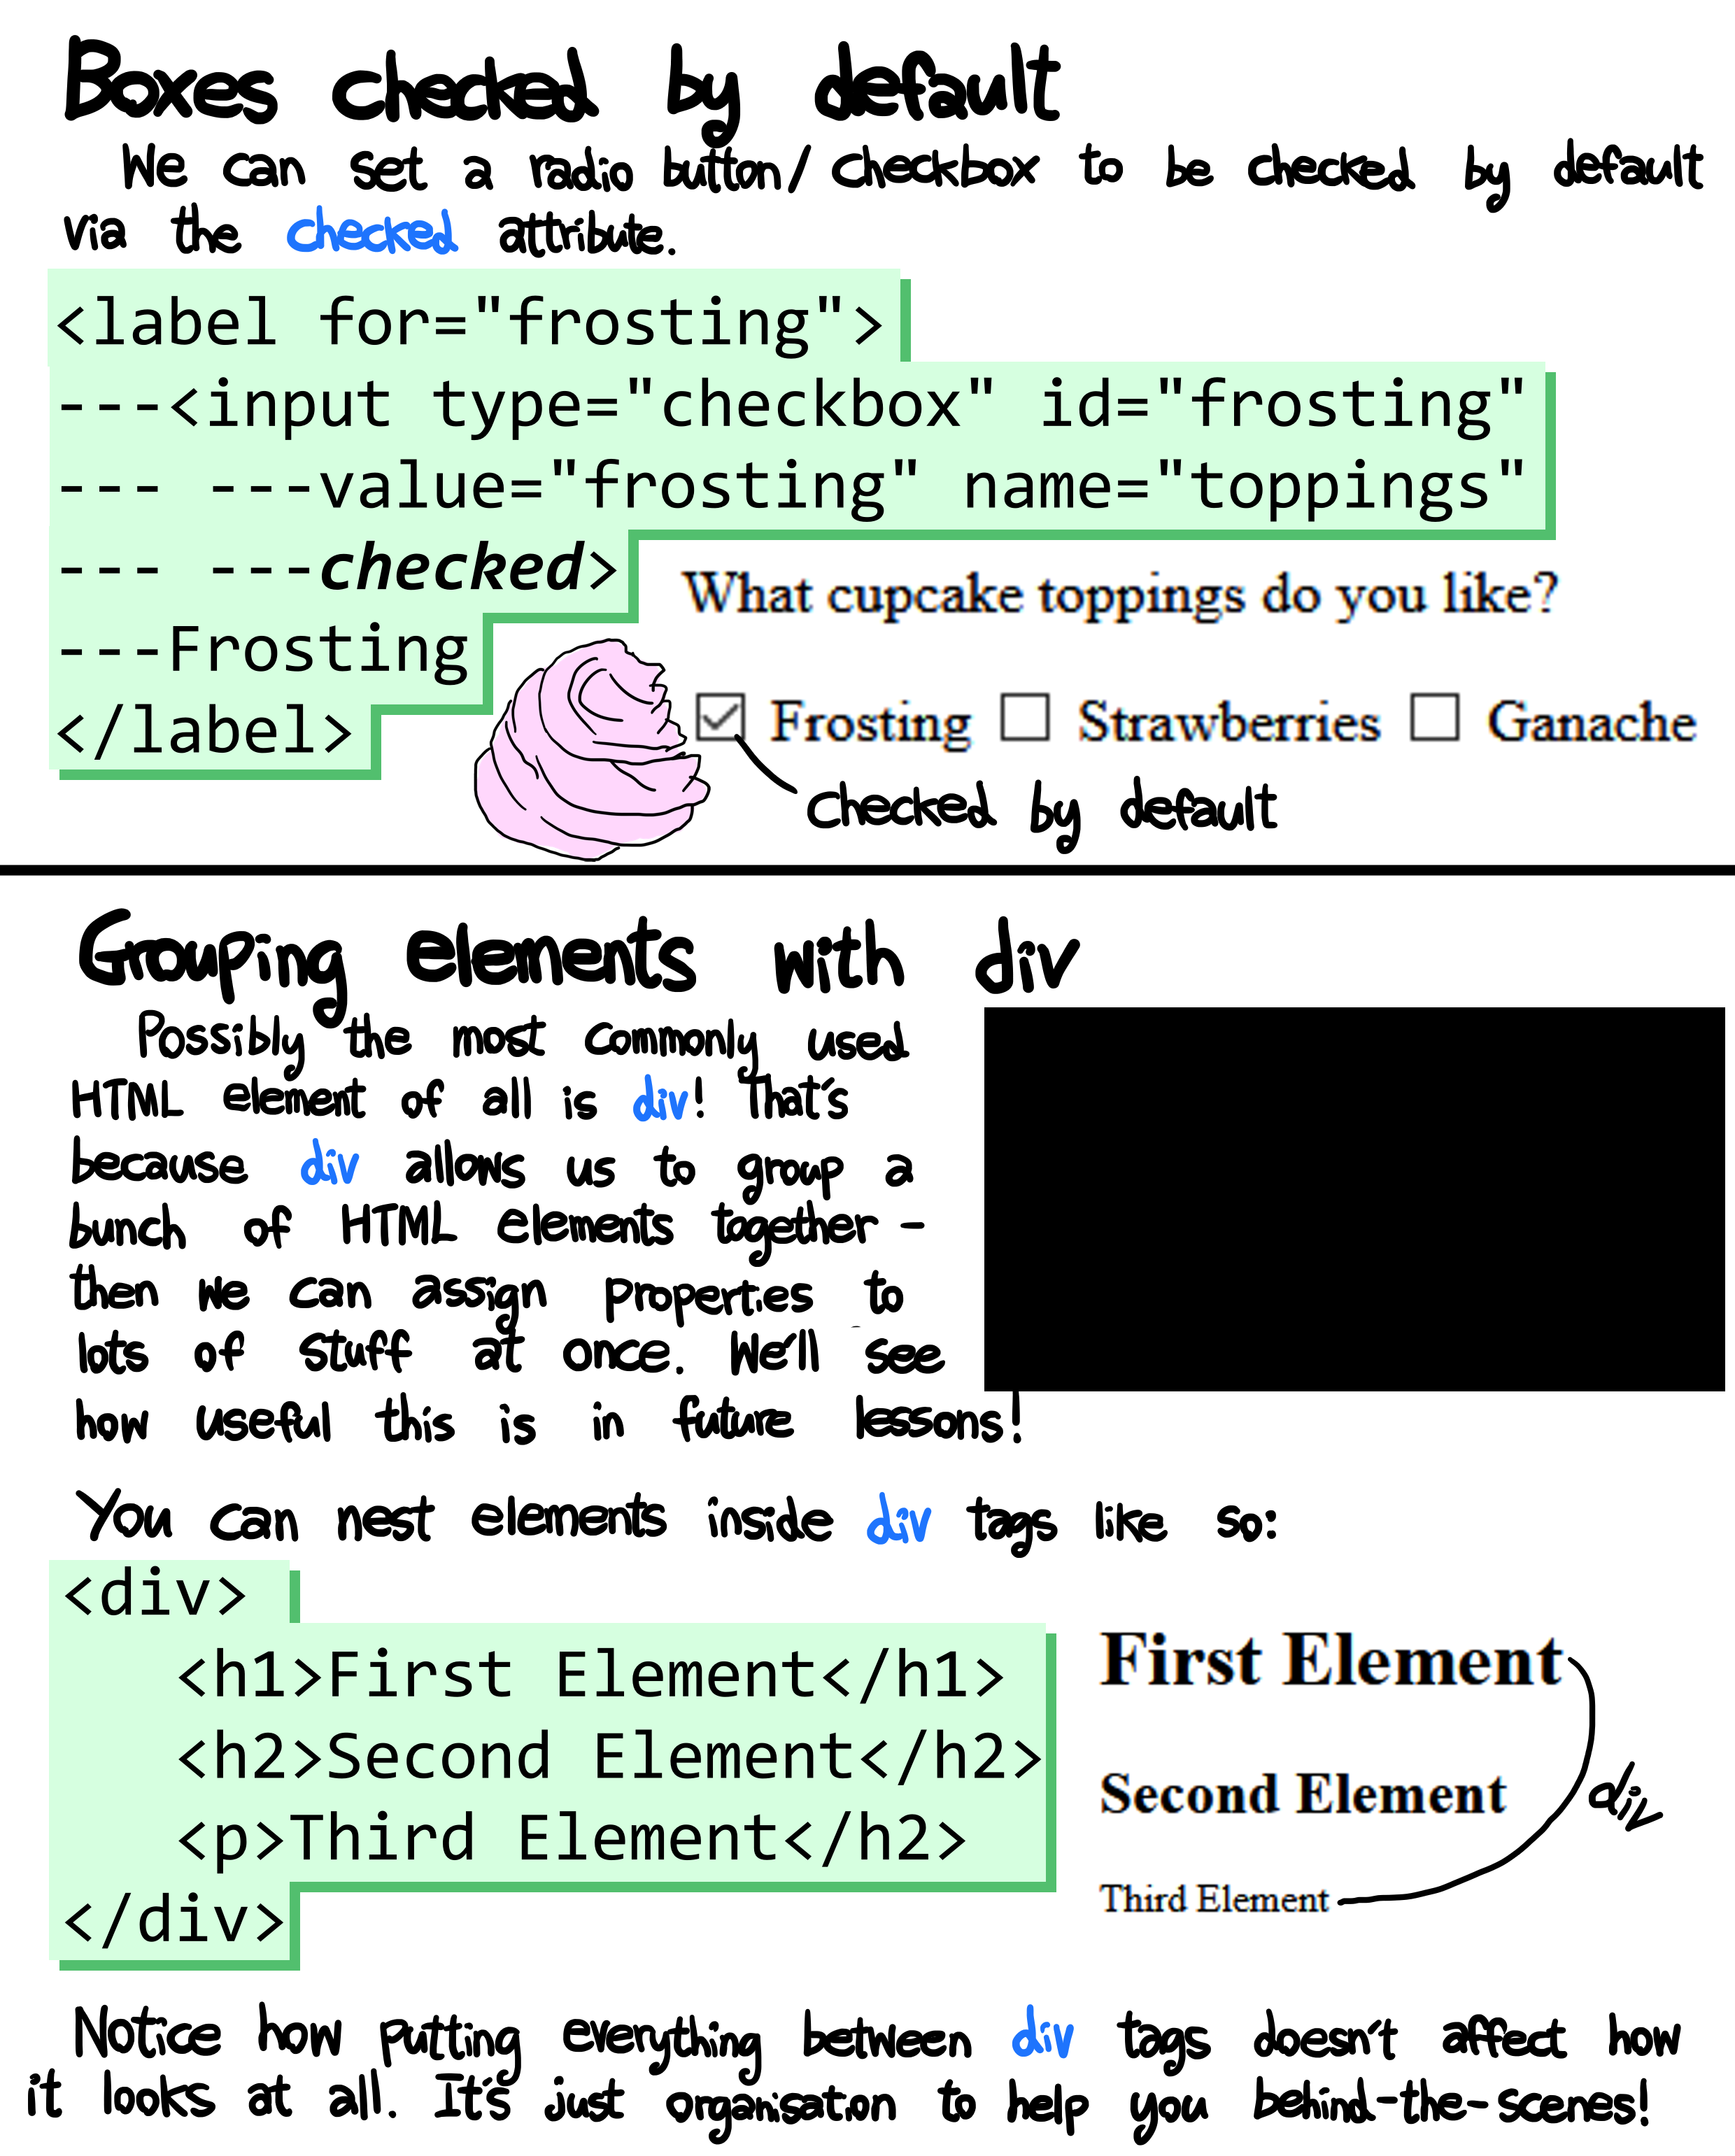 Boxes checked by default
We can set a radio button/checkbox to be checked by default
via the checked attribute.
<label for="frosting">
---<input type="checkbox" id="frosting"
--- ---value="frosting" name="toppings"
--- ---checked>
---Frosting
</label>
What cupcake toppings do you like?
Frosting Strawberries Ganache
Checked by default
Grouping elements with div
Possibly the most commonly used
HTML element of all is div! That's
because div allows us to group a
bunch of HTML elements together -
then we can assign properties to
lots of stuff at once. We'll see
how useful this is in future lessons!
You can nest elements inside div tags like so:
<div>
<h1>First Element</h1>
<h2>Second Element</h2>
<p>Third Element</h2>
</div>
First Element
Second Element
Third Element
div
Notice how putting everything between div tags doesn't affect how
it looks at all. It's just organisation to help you behind-the-scenes!